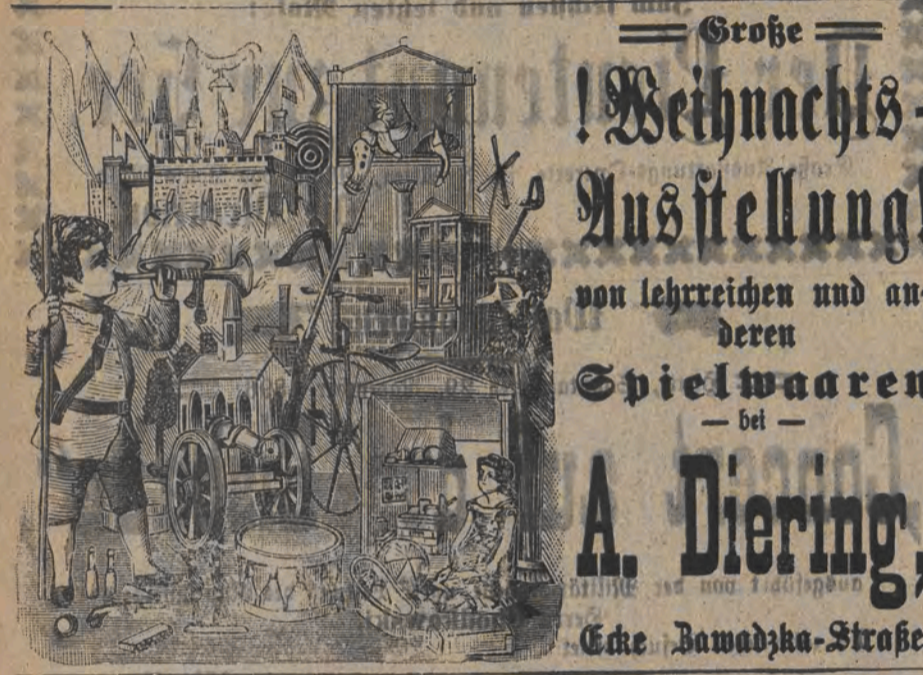 Große
! Weihnachts
Ausstellung!
von lehrreichen und an-
deren
Spielwaaren
— bei —
A. Diering,
Ecke Zawadzka-Straße